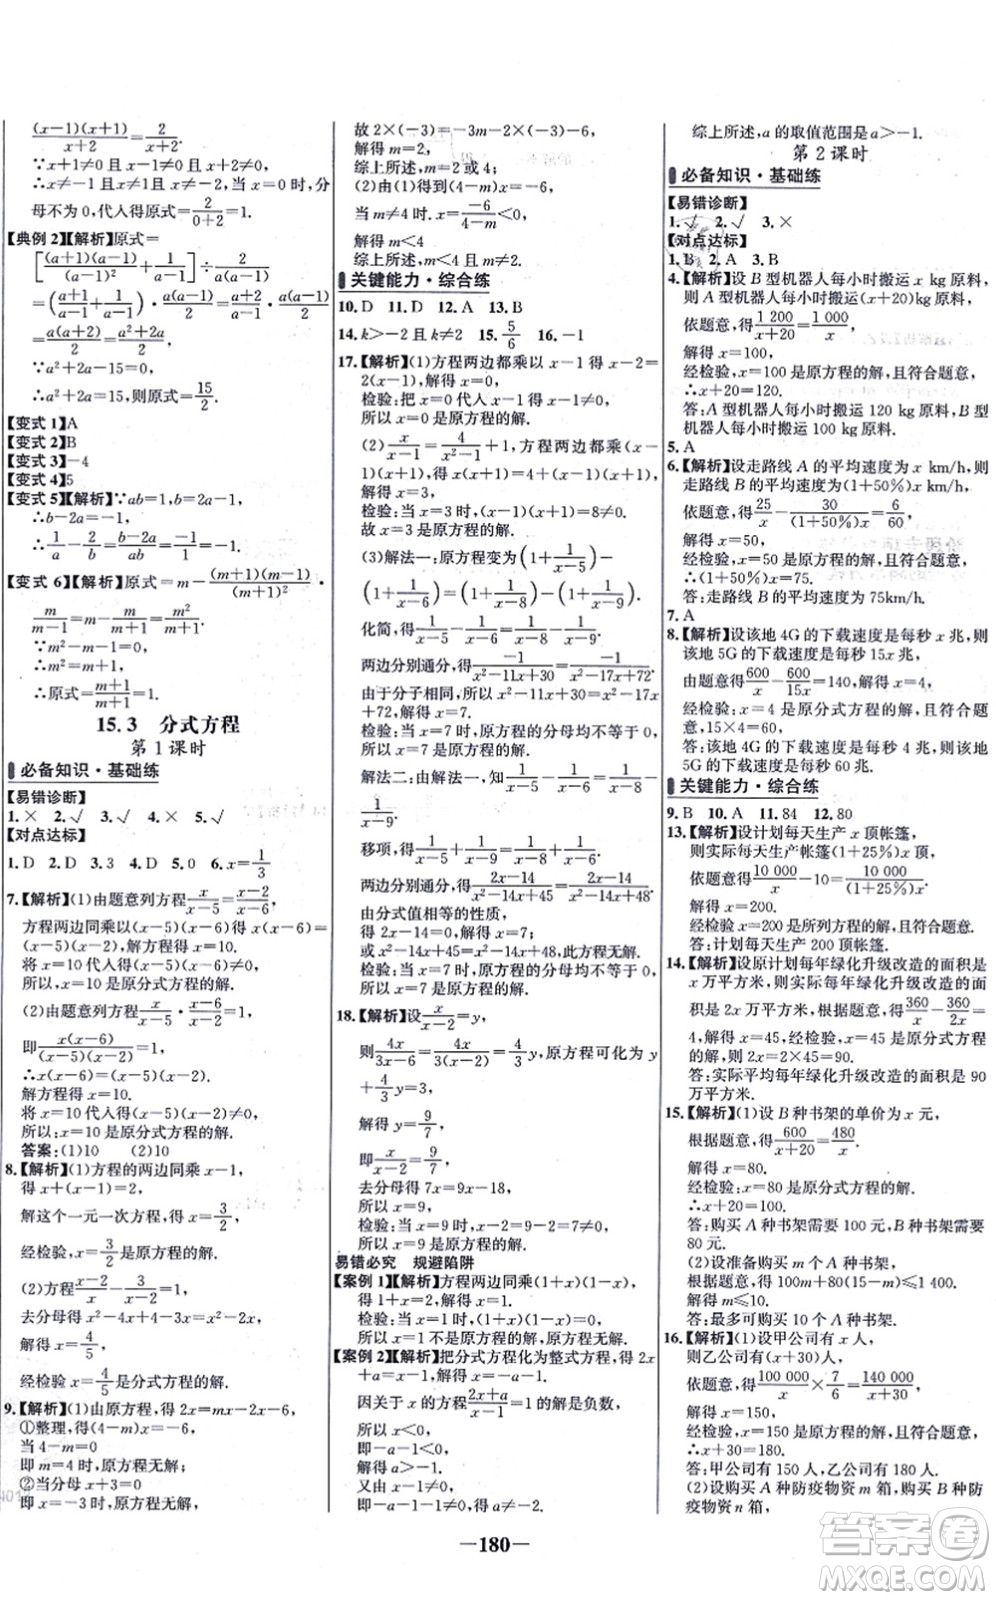 (x-1)(x+1)/(x+2)=2/(x+2).
∵x+1≠0 且 x-1≠0 且 x+2≠0,
∴x≠-1 且 x≠1 且 x≠-2,当 x=0 时,分
母不为 0,代入得原式=2/(0+2)=1.
【典例 2】【解析】原式=
[(a+1)(a-1)/(a-1)²+1/(a-1)]÷2/(a(a-1))
=((a+1)/(a-1)+1/(a-1))·a(a-1)/2=(a+2)/(a-1)·a(a-1)/2=
a(a+2)/2=(a²+2a)/2,
∵a²+2a-15=0,
∴a²+2a=15,则原式=15/2.
【变式 1】A
【变式 2】B
【变式 3】-4
【变式 4】5
【变式 5】【解析】∵ab=1,b=2a-1,
∴b-2a=-1,
∴1/a-2/b=(b-2a)/ab=-1/1=-1.
【变式 6】【解析】原式=m-(m+1)(m-1)/(m-1)²·
m/(m+1)=m-m/(m-1)=
∵m²-m-1=0,
∴m²=m+1,
∴原式=(m+1)/(m+1)=1.
15.3 分式方程
第 1 课时
必备知识·基础练
【易错诊断】
1.× 2.√ 3.√ 4.× 5.√
【对点达标】
1.D 2.D 3.3 4.D 5.0 6.x=1/3
7.【解析】(1)由题意列方程x/(x-5)=(x-2)/(x-6),
方程两边同乘以(x-5)(x-6)得 x(x-6)=
(x-5)(x-2),解方程得 x=10.
将 x=10 代入得(x-5)(x-6)≠0,
所以:x=10 是原分式方程的解.
(2)由题意列方程x/(x-5)·(x-6)/(x-2)=1,
即x(x-6)/((x-5)(x-2))=1,
∴x(x-6)=(x-5)(x-2).
解方程得 x=10.
将 x=10 代入得(x-5)(x-2)≠0,
所以:x=10 是原分式方程的解.
答案:(1)10 (2)10
8.【解析】(1)方程的两边同乘 x-1,
得 x+(x-1)=2,
解这个一元一次方程,得 x=3/2,
经检验,x=3/2是原方程的解.
(2)方程(x-2)/x-x/(x-2)=1,
去分母得 x²-4x+4-x²=x²-2x,
解得 x=4/5,
经检验 x=4/5是分式方程的解.
9.【解析】(1)由原方程,得 2x=mx-2x-6,
①整理,得(4-m)x=-6,
当 4-m=0
即 m=4 时,原方程无解;
②当分母 x+3=0
即 x=-3 时,原方程无解,
故 2×(-3)=-3m-2×(-3)-6,
解得 m=2,
综上所述,m=2 或 4;
(2)由(1)得到(4-m)x=-6,
当 m≠4 时,x=-6/(4-m)<0,
解得 m<4
综上所述,m<4 且 m≠2.
关键能力·综合练
10.D 11.D 12.A 13.B
14.k>-2 且 k≠2 15.5/6 16.-1
17.【解析】(1)方程两边都乘以 x-1 得 x-2=
2(x-1),解得 x=0,
检验:把 x=0 代入 x-1≠0,
所以 x=0 是原方程的解.
(2)x/(x-1)=4/(x²-1)+1,方程两边都乘(x-
1)(x+1),得 x(x+1)=4+(x-1)(x+1),
解得 x=3,
检验:当 x=3 时,(x-1)(x+1)=8≠0.
故 x=3 是原方程的解.
(3)解法一:原方程变为(1+1/(x-5))-
(1+1/(x-6))=(1+1/(x-8))-(1+1/(x-9)).
化简,得1/(x-5)-1/(x-6)=1/(x-8)-1/(x-9),
两边分别通分,得-1/(x²-11x+30)=-1/(x²-17x+72),
由于分子相同,所以 x²-11x+30=x²-17x+
72,解得 x=7,
检验:当 x=7 时,原方程的分母均不为零,
所以 x=7 是原方程的解.
解法二:由解法一,得1/(x-5)-1/(x-6)=1/(x-8)-
1/(x-9).
移项,得1/(x-5)+1/(x-9)=1/(x-6)+1/(x-8),
两边分别通分,得(2x-14)/(x²-14x+45)=(2x-14)/(x²-14x+48),
由分式值相等的性质,
得 2x-14=0,解得 x=7;
或 x²-14x+45=x²-14x+48,此方程无解.
检验:当 x=7 时,原方程的分母均不为零,
所以原方程的解为 x=7.
18.【解析】设x/(x-2)=y,
则4x/(3x-6)=4x/(3(x-2))=4/3y,原方程可化为 y
+4/3y=3,
解得 y=9/7,
即x/(x-2)=9/7,
去分母得 7x=9x-18,
所以 x=9,
检验:当 x=9 时,x-2=7≠0,
所以 x=9 是原方程的解.
易错必究 规避陷阱
【案例 1】【解析】方程两边同乘(1+x)(1-x),
得 1+x=2,解得 x=1,
检验:当 x=1 时,(1+x)(1-x)=0,
所以 x=1 不是原方程的解,原方程无解.
【案例 2】【解析】把分式方程化为整式方程,得 2x
+a=x-1,解得 x=-1-a.
因关于 x 的方程(2x+a)/(x-1)=1 的解是负数,
即-1-a<0,
解得 a>-1.
又由 x-1≠0,
即-1-a-1≠0,解得 a≠-2,
综上所述,a 的取值范围是 a>-1.
第 2 课时
必备知识·基础练
【易错诊断】
1.√ 2.√ 3.×
【对点达标】
1.B 2.A 3.B
4.【解析】设 B 型机器人每小时搬运 x kg 原料,
则 A 型机器人每小时搬运(x+20)kg 原料,
依题意,得1 200/(x+20)=1 000/x,
解得 x=100,
经检验,x=100 是原方程的解,且符合题意,
∴x+20=120.
答:A 型机器人每小时搬运 120 kg 原料,B 型
机器人每小时搬运 100 kg 原料.
5.A
6.【解析】设走路线 A 的平均速度为 x km/h,则
走路线 B 的平均速度为(1+50%)x km/h,
依题意,得25/x-30/((1+50%)x)=6/60,
解得 x=50,
经检验,x=50 是原方程的解,且符合题意,
∴(1+50%)x=75.
答:走路线 B 的平均速度为 75km/h.
7.A
8.【解析】设该地 4G 的下载速度是每秒 x 兆,则
该地 5G 的下载速度是每秒 15x 兆,
由题意得600/x-600/15x=140,解得 x=4,
经检验,x=4 是原分式方程的解,且符合题
意,15×4=60,
答:该地 4G 的下载速度是每秒 4 兆,则该地
5G 的下载速度是每秒 60 兆.
关键能力·综合练
9.B 10.A 11.84 12.80
13.【解析】设计划每天生产 x 顶帐篷,
则实际每天生产帐篷(1+25%)x 顶,
依题意得10 000/x-10=10 000/((1+25%)x),
解得 x=200.
经检验 x=200 是所列方程的解,且符合题意,
答:计划每天生产 200 顶帐篷.
14.【解析】设原计划每年绿化升级改造的面积是
x 万平方米,则实际每年绿化升级改造的面
积是 2x 万平方米,根据题意,得360/x-360/2x=
4,解得:x=45,经检验,x=45 是原分式方程
的解,则 2x=2×45=90.
答:实际平均每年绿化升级改造的面积是 90
万平方米.
15.【解析】(1)设 B 种书架的单价为 x 元,
根据题意,得600/(x+20)=480/x,
解得 x=80,
经检验:x=80 是原分式方程的解.
∴x+20=100.
答:购买 A 种书架需要 100 元,B 种书架需要
80 元.
(2)设准备购买 m 个 A 种书架,
根据题意,得 100m+80(15-m)≤1 400.
解得 m≤10.
答:最多可购买 10 个 A 种书架.
16.【解析】(1)设甲公司有 x 人,
则乙公司有(x+30)人,
依题意,得100 000/x×7/6=140 000/(x+30),
解得 x=150,
经检验,x=150 是原方程的解,且符合题意,
∴x+30=180.
答:甲公司有 150 人,乙公司有 180 人.
(2)设购买 A 种防疫物资 m 箱,购买 B 种防
疫物资 n 箱,
—180—
答案圈
MXQE.COM